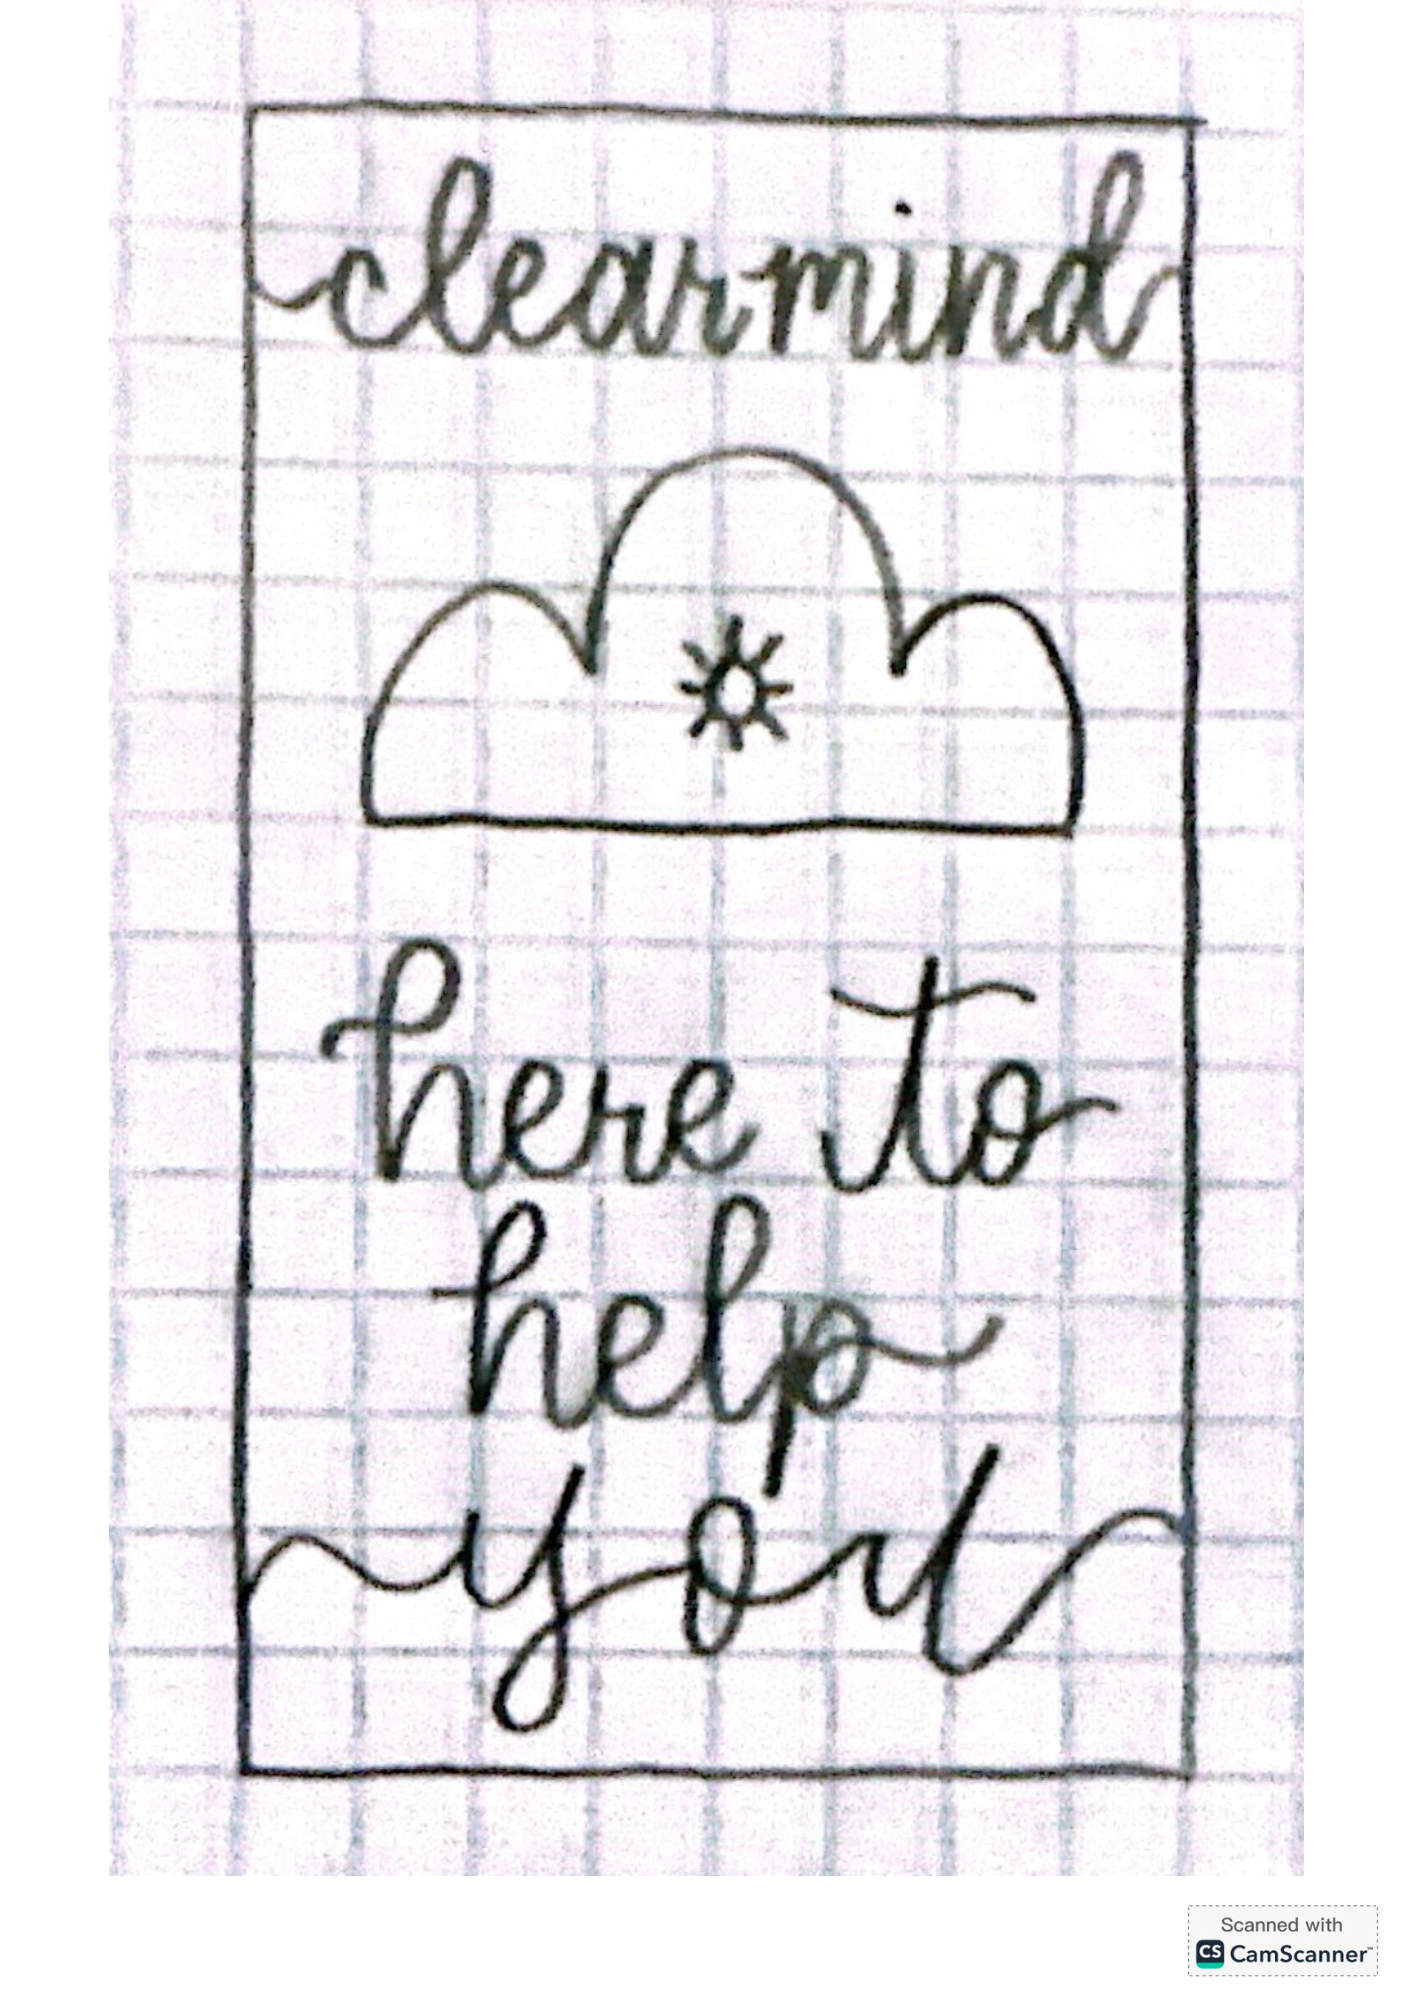 clearmind
here to
help
you
Scanned with
CS CamScanner